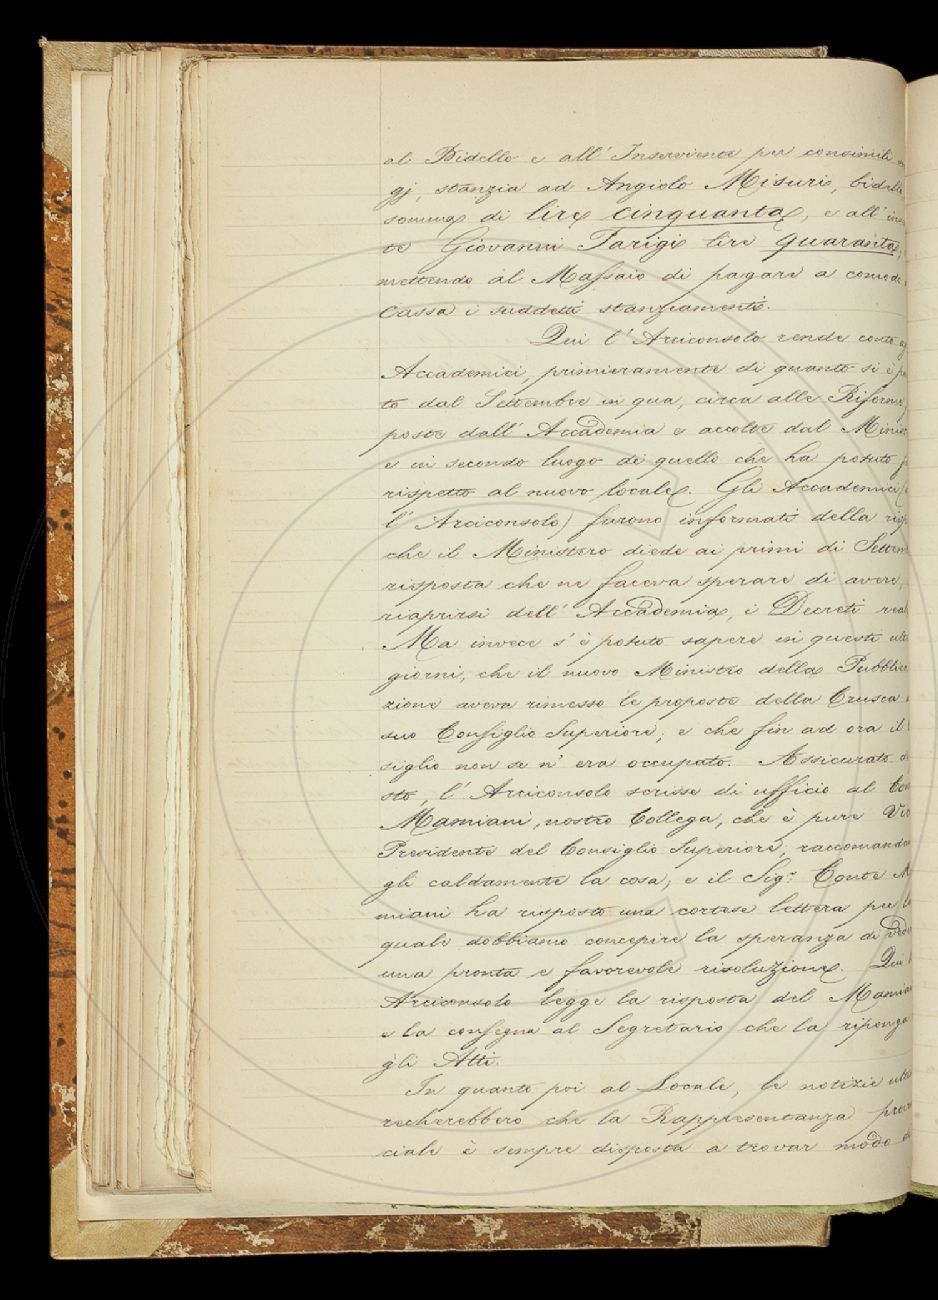 al Bidello e all' Inserviente per consimili
gj, stanzia ad Angiolo Misuri, bidello
somma di lire cinquanta, e all' in
te Giovanni Parigi lire quaranta,
mettendo al Massaio di pagare a comodo
cassa i suddetti stanziamenti.
Qui l' Arciconsolo rende conto ag
Accademici, primieramente di quanto si è
to dal Settembre in qua, circa alle Riforme
poste dall' Accademia e accolte dal Minis
e in secondo luogo di quello che ha potuto
rispetto al nuovo locale. Gli Accademici
l' Arciconsolo) furono informati della risp
che il Ministero diede ai primi di Settem
risposta che ne faceva sperare di avere,
riaprirsi dell' Accademia, i Decreti real
Ma invece s' è potuto sapere in questi ulti
giorni, che il nuovo Ministro della Pubblic
zione aveva rimesso le proposte della Crusca
suo Consiglio Superiore; e che fin ad ora il
siglio non se n' era occupato. Assicurato
sto, l' Arciconsolo scrisse di ufficio al Con
Mamiani, nostro Collega, che è pure Vic
Presidente del Consiglio Superiore, raccomandan
gli caldamente la cosa; e il Sig.r Conte M
miani ha risposto una cortese lettera per la
quale dobbiamo concepire la speranza di vede
una pronta e favorevole risoluzione. Qui l
Arciconsolo legge la risposta del Mamian
e la consegna al Segretario che la riponga
gli Atti.
In quanto poi al Locale, le notizie ulti
recherebbero che la Rappresentanza provin
ciale è sempre disposta a trovar modo